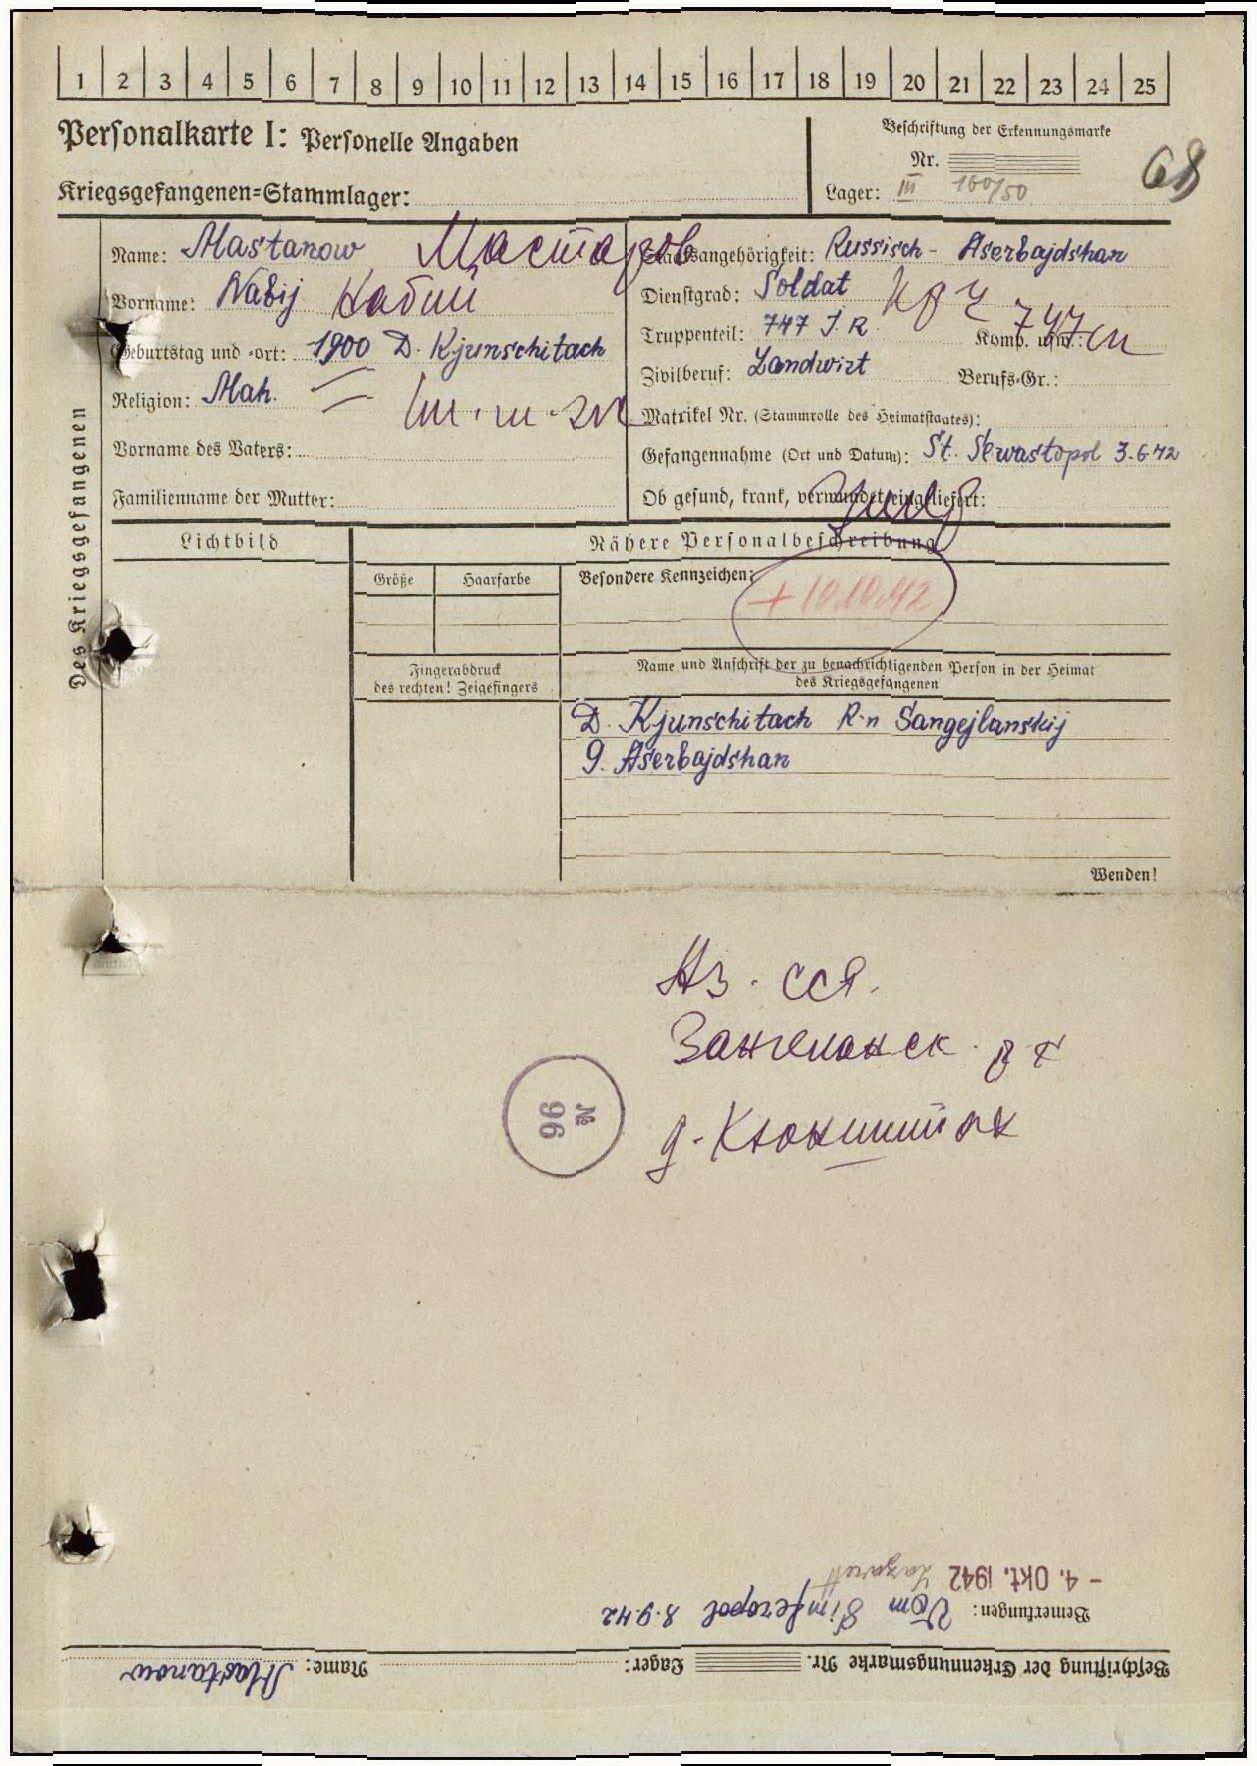 1 2 3 4 5 6 7 8 9 10 11 12 13 14 15 16 17 18 19 20 21 22 23 24 25
Personalkarte I: Personelle Angaben
Kriegsgefangenen=Stammlager:
Beschriftung der Erkennungsmarke
Nr.
Lager: III 160/50
68
Des Kriegsgefangenen
Name: Mastanow Мастанов
Vorname: Nabij Набий
Geburtstag und -ort: 1900 D. Kjunschitach
Religion: Moh.
Vorname des Vaters:
Familienname der Mutter:
Staatsangehörigkeit: Russisch - Aserbajdshan
Dienstgrad: Soldat
Truppenteil: 747 I.R. Komp. usw.: 747
Zivilberuf: Landwirt Berufs=Gr.:
Matrikel Nr. (Stammrolle des Heimatstaates):
Gefangennahme (Ort und Datum): St. Sewastopol 3.6.42
Ob gesund, krank, verwundet eingeliefert:
Lichtbild
Nähere Personalbeschreibung
Größe
Haarfarbe
Besondere Kennzeichen:
+ 10.10.42
Fingerabdruck
des rechten! Zeigefingers
Name und Anschrift der zu benachrichtigenden Person in der Heimat
des Kriegsgefangenen
D. Kjunschitach R-n Sangejlanskij
G. Aserbajdshan
Wenden!
Аз. ССР.
Зангеланск. р-н
д. Кюншитак
№
96
Beschriftung der Erkennungsmarke Nr. Lager: Name: Mastanow
Bemerkungen: Vom Simferopol 8.9.42
- 4. Okt. 1942 Lazarett